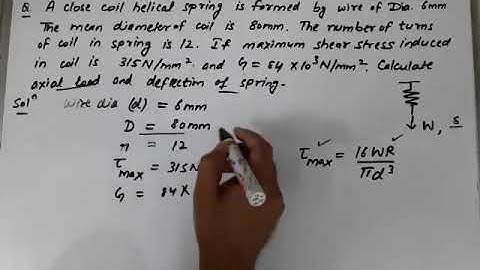 Q. A close coil helical spring is formed by wire of Dia. 6mm
The mean diameter of coil is 80mm. The number of turns
of coil in spring is 12. If maximum shear stress induced
in coil is 315 N/mm² and G = 84 × 10³ N/mm². Calculate
axial load and deflection of spring.
Solⁿ wire dia (d) = 6mm
D = 80mm
n = 12
τmax = 315N
G = 84 ×
W, δ
τmax = 16WR / πd³